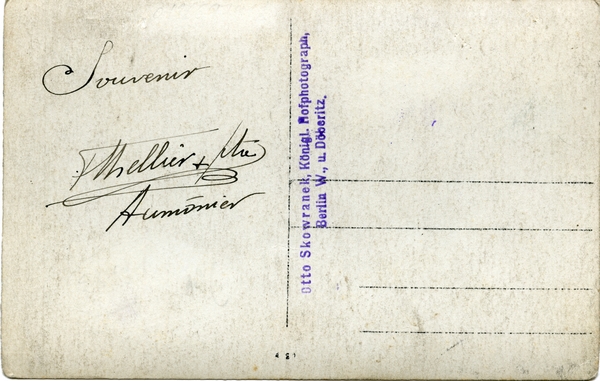 Souvenir
Aumônier
Otto Skowranek, Königl. Hofphotograph,
Berlin W., u. Döberitz.